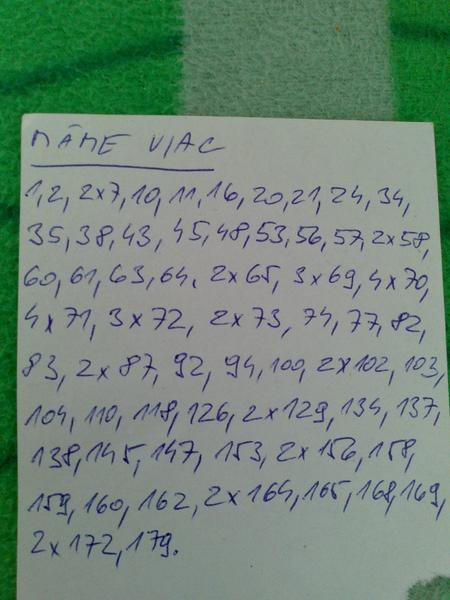 MÁME VIAC
1, 2, 2x7, 10, 11, 16, 20, 21, 24, 34,
35, 38, 43, 45, 48, 53, 56, 57, 2x58,
60, 61, 63, 64, 2x65, 3x69, 4x70,
4x71, 3x72, 2x73, 74, 77, 82,
83, 2x87, 92, 94, 100, 2x102, 103,
104, 110, 118, 126, 2x129, 134, 137,
138, 145, 147, 153, 2x156, 158,
159, 160, 162, 2x164, 165, 168, 169,
2x172, 179.